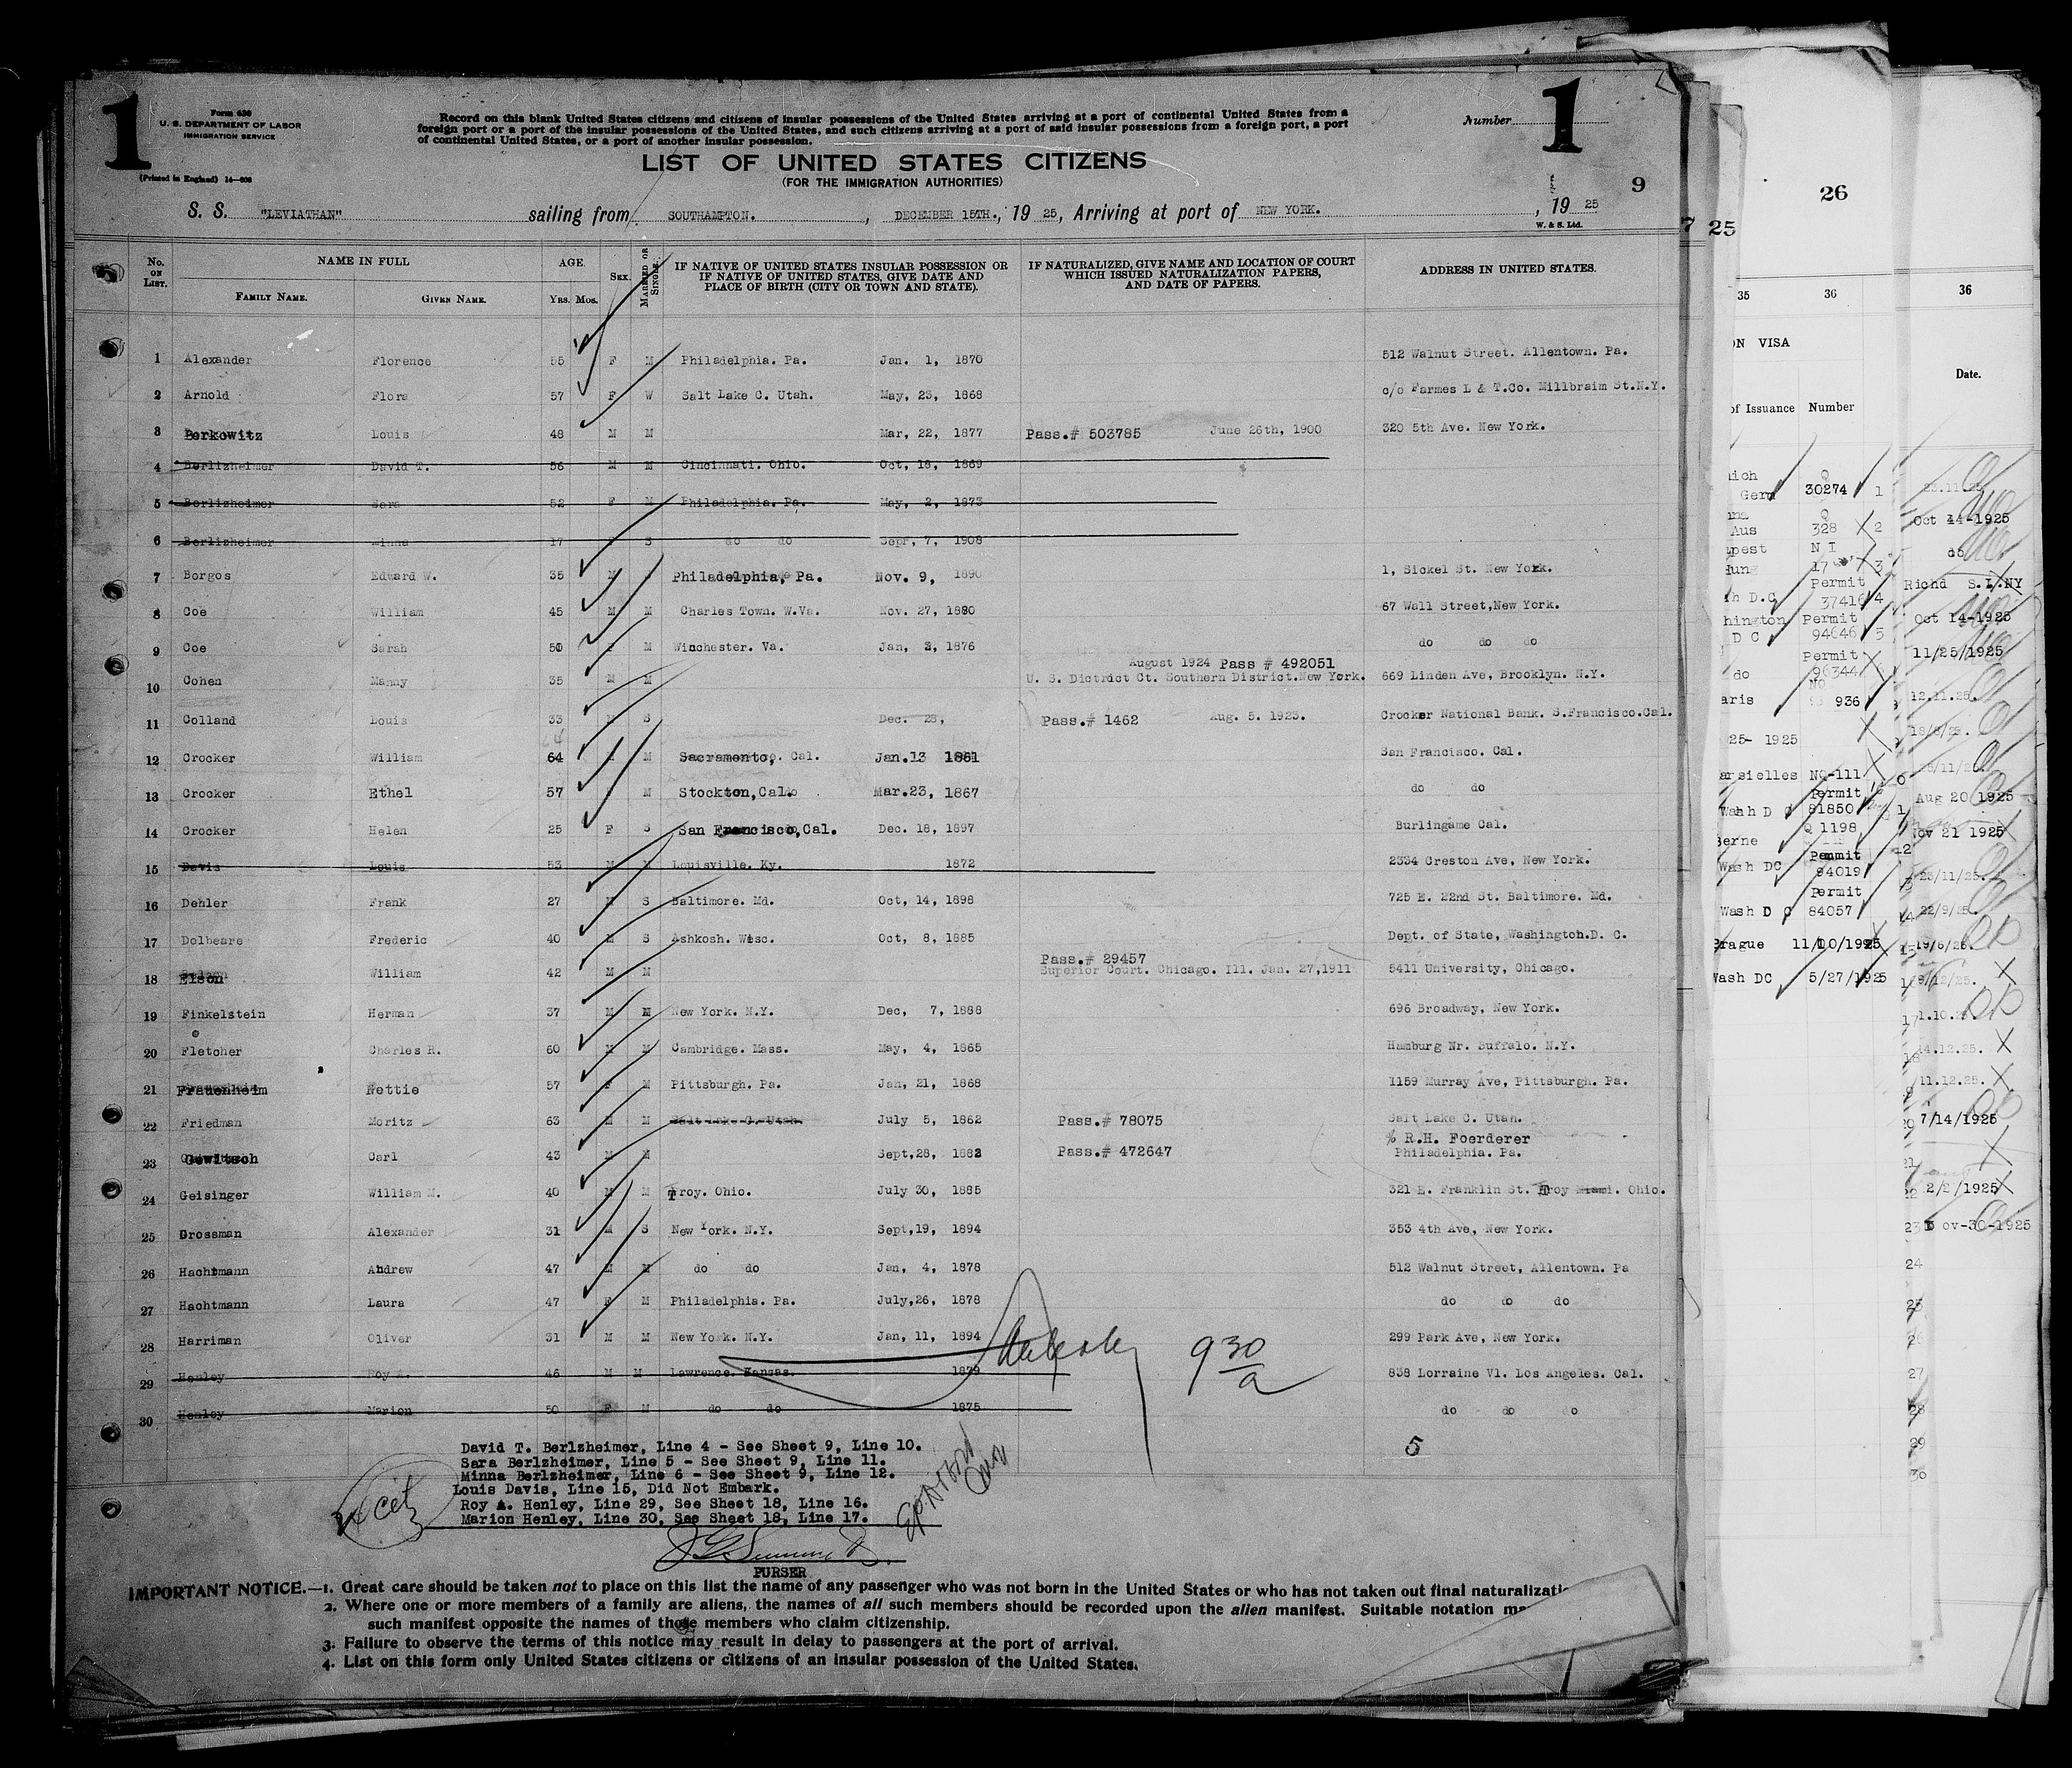 1
Form 630
U. S. DEPARTMENT OF LABOR
IMMIGRATION SERVICE
(Printed in England) 14—608
Record on this blank United States citizens and citizens of insular possessions of the United States arriving at a port of continental United States from a
foreign port or a port of the insular possessions of the United States, and such citizens arriving at a port of said insular possessions from a foreign port, a port
of continental United States, or a port of another insular possession.
Number 1
LIST OF UNITED STATES CITIZENS
(FOR THE IMMIGRATION AUTHORITIES)
9
S. S. "LEVIATHAN" sailing from SOUTHAMPTON. , DECEMBER 15TH., 19 25, Arriving at port of NEW YORK. , 19 25
W. & S. Ltd.
No. ON LIST. NAME IN FULL AGE. SEX. MARRIED OR SINGLE. IF NATIVE OF UNITED STATES INSULAR POSSESSION OR IF NATIVE OF UNITED STATES, GIVE DATE AND PLACE OF BIRTH (CITY OR TOWN AND STATE). IF NATURALIZED, GIVE NAME AND LOCATION OF COURT WHICH ISSUED NATURALIZATION PAPERS, AND DATE OF PAPERS. ADDRESS IN UNITED STATES.
FAMILY NAME. GIVEN NAME. YRS. MOS.
1 Alexander Florence 55 F M Philadelphia. Pa. Jan. 1, 1870 512 Walnut Street. Allentown. Pa.
2 Arnold Flora 57 F W Salt Lake C. Utah. May, 23, 1868 c/o Farmes L & T.Co. Millbraim St.N.Y.
3 Berkowitz Louis 48 M M Mar, 22, 1877 Pass.# 503785 June 26th, 1900 320 5th Ave. New York.
4 Berlizheimer David T. 56 M M Cincinnati. Ohio. Oct, 18, 1869
5 Berlizheimer Sara 52 F M Philadelphia. Pa. May, 2, 1873
6 Berlizheimer Minna 17 S do do Sepr, 7, 1908
7 Borgos Edward W. 35 M S Philadelphia, Pa. Nov. 9, 1890 1, Sickel St. New York.
8 Coe William 45 M M Charles Town. W.Va. Nov. 27, 1880 67 Wall Street,New York.
9 Coe Sarah 50 F M Winchester. Va. Jan, 3, 1876 do do do
August 1924 Pass # 492051
10 Cohen Manny 35 M M U. S. Dictrict Ct. Southern District.New York. 669 Linden Ave, Brooklyn. N.Y.
11 Colland Louis 33 M S Dec. 28, Pass.# 1462 Aug. 5. 1923. Crocker National Bank. S.Francisco.Cal.
12 Crocker William 64 M M Sacramento, Cal. Jan.13 1861 San Francisco. Cal.
13 Crocker Ethel 57 F M Stockton,Cal. Mar.23, 1867 do do
14 Crocker Helen 25 F S San Francisco,Cal. Dec. 18, 1897 Burlingame Cal.
15 Davis Louis 53 M M Louisville. Ky. 1872 2334 Creston Ave, New York.
16 Dehler Frank 27 M S Baltimore. Md. Oct, 14, 1898 725 E. 22nd St. Baltimore. Md.
17 Dolbeare Frederic 40 M S Ashkosh. Wisc. Oct, 8, 1885 Dept. of State, Washington.D. C.
Pass.# 29457
18 Elson William 42 M M Superior Court. Chicago. Ill. Jan. 27,1911 5411 University, Chicago.
19 Finkelstein Herman 37 M M New York. N.Y. Dec, 7, 1888 696 Broadway, New York.
20 Fletcher Charles R. 60 M M Cambridge. Mass. May, 4, 1865 Hamburg Nr. Buffalo. N.Y.
21 Frauenheim Nettie 57 F M Pittsburgh. Pa. Jan, 21, 1868 1159 Murray Ave, Pittsburgh. Pa.
22 Friedman Moritz 63 M M Salt Lake C. Utah. July 5, 1862 Pass.# 78075 Salt Lake C. Utah.
% R.H. Foerderer
23 Gewitsch Carl 43 M M Sept,28, 1882 Pass.# 472647 Philadelphia. Pa.
24 Geisinger William M. 40 M M Troy. Ohio. July 30, 1885 321 E. Franklin St. Troy Miami. Ohio.
25 Grossman Alexander 31 M S New York. N.Y. Sept,19, 1894 353 4th Ave, New York.
26 Hachtmann Andrew 47 M M do do Jan, 4, 1878 512 Walnut Street, Allentown. Pa
27 Hachtmann Laura 47 F M Philadelphia. Pa. July,26, 1878 do do do
28 Harriman Oliver 31 M M New York. N.Y. Jan, 11, 1894 299 Park Ave, New York.
29 Henley Roy A. 46 M M Lawrence. Kansas. 1879 838 Lorraine Vl. Los Angeles. Cal.
30 Henley Marion 50 F M do do 1875 do do do
9 30/a
5
David T. Berlzheimer, Line 4 - See Sheet 9, Line 10.
Sara Berlzheimer, Line 5 - See Sheet 9, Line 11.
Minna Berlzheimer, Line 6 - See Sheet 9, Line 12.
Louis Davis, Line 15, Did Not Embark.
Roy A. Henley, Line 29, See Sheet 18, Line 16.
Marion Henley, Line 30, See Sheet 18, Line 17.
PURSER
IMPORTANT NOTICE.—1. Great care should be taken not to place on this list the name of any passenger who was not born in the United States or who has not taken out final
2. Where one or more members of a family are aliens, the names of all such members should be recorded upon the alien manifest. Suitable notation
such manifest opposite the names of those members who claim citizenship.
3. Failure to observe the terms of this notice may result in delay to passengers at the port of arrival.
4. List on this form only United States citizens or citizens of an insular possession of the United States.
25
26
35 36
36
VISA
Date.
of Issuance Number
Germ 30274 1
Aus 328 2
Oct 14-1925
Hung 17 3
Permit
D.C 37416 4
Richd S.I.NY
Permit
D C 94646 5
Oct 14-1925
Permit
do 96344
11/25/1925
936
12.11.25.
25- 1925
NQ-111
Permit
Wash D C 81850
Aug 20 1925
Q 1198
Berne
Nov 21 1925
Permit
Wash DC 94019
23/11/25.
Permit
Wash D C 84057
22/9/25.
Prague 11/10/1925
19/6/25.
Wash DC 5/27/1925
14.12.25.
11.12.25.
7/14/1925
2/2/1925
ov-30-1925
24
25
26
27
28
29
30